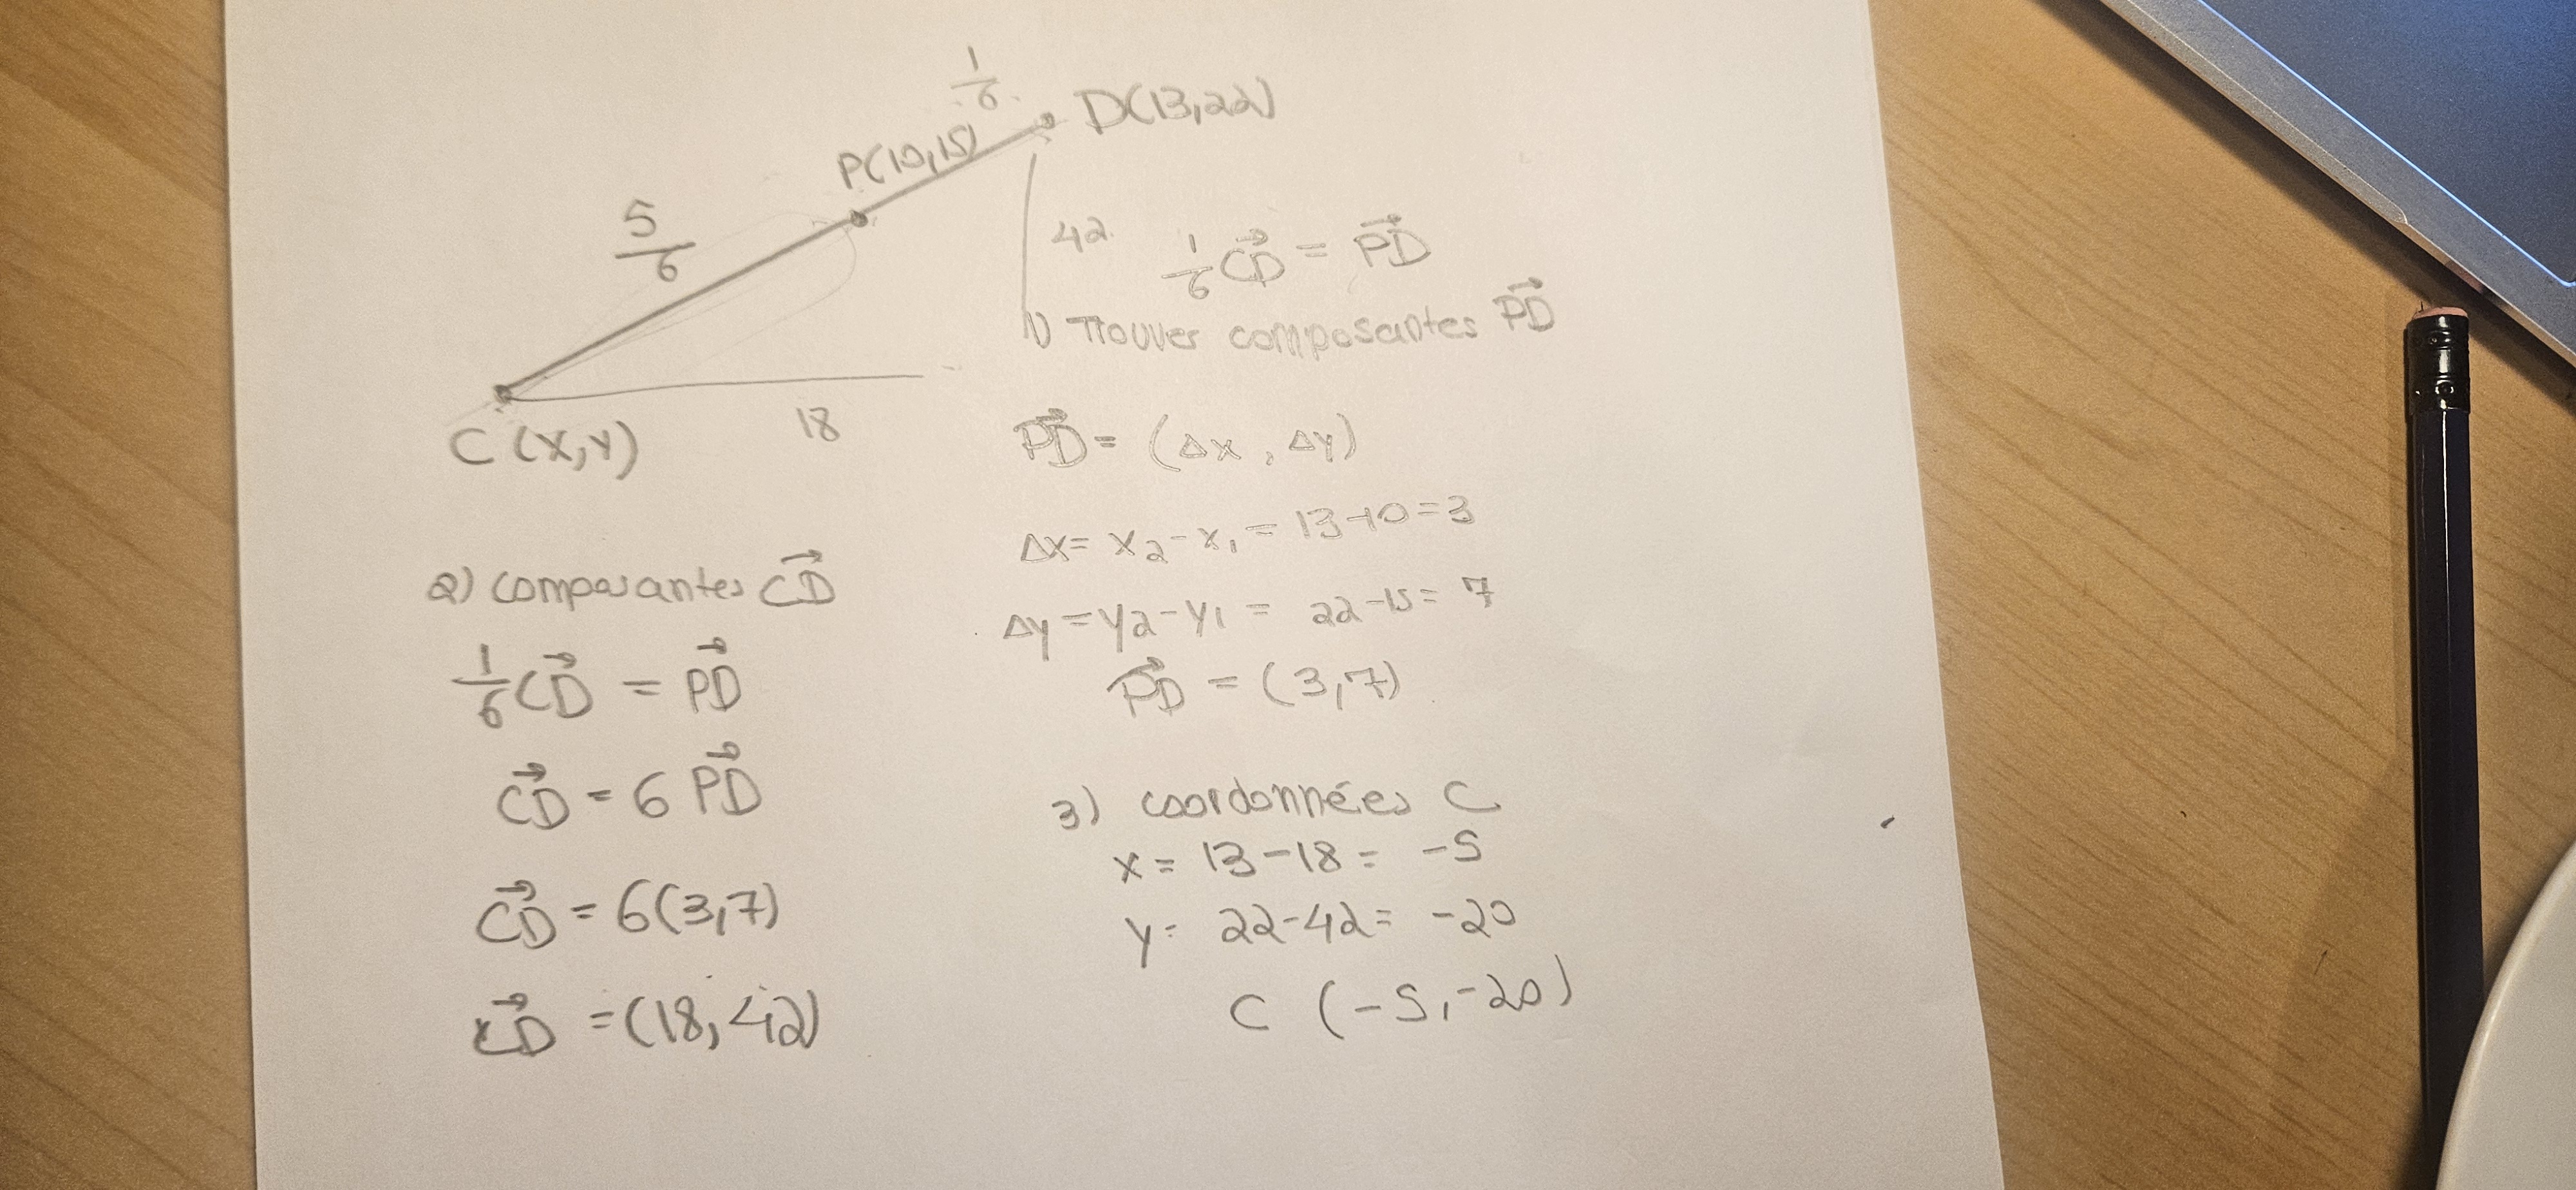 1/6
D(13,22)
P(10,15)
5/6
42
1/6 CD⃗ = PD⃗
C (x,y)
18
1) Trouver composantes PD⃗
PD⃗ = (Δx, Δy)
Δx = x₂ - x₁ = 13-10 = 3
Δy = y₂ - y₁ = 22-15 = 7
PD⃗ = (3,7)
2) composantes CD⃗
1/6 CD⃗ = PD⃗
CD⃗ = 6 PD⃗
CD⃗ = 6(3,7)
CD⃗ = (18, 42)
3) coordonnées C
x = 13-18 = -5
y = 22-42 = -20
C (-5,-20)